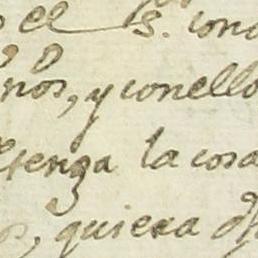 el S. cono
nos, y conello
tenga la cosa
quiera